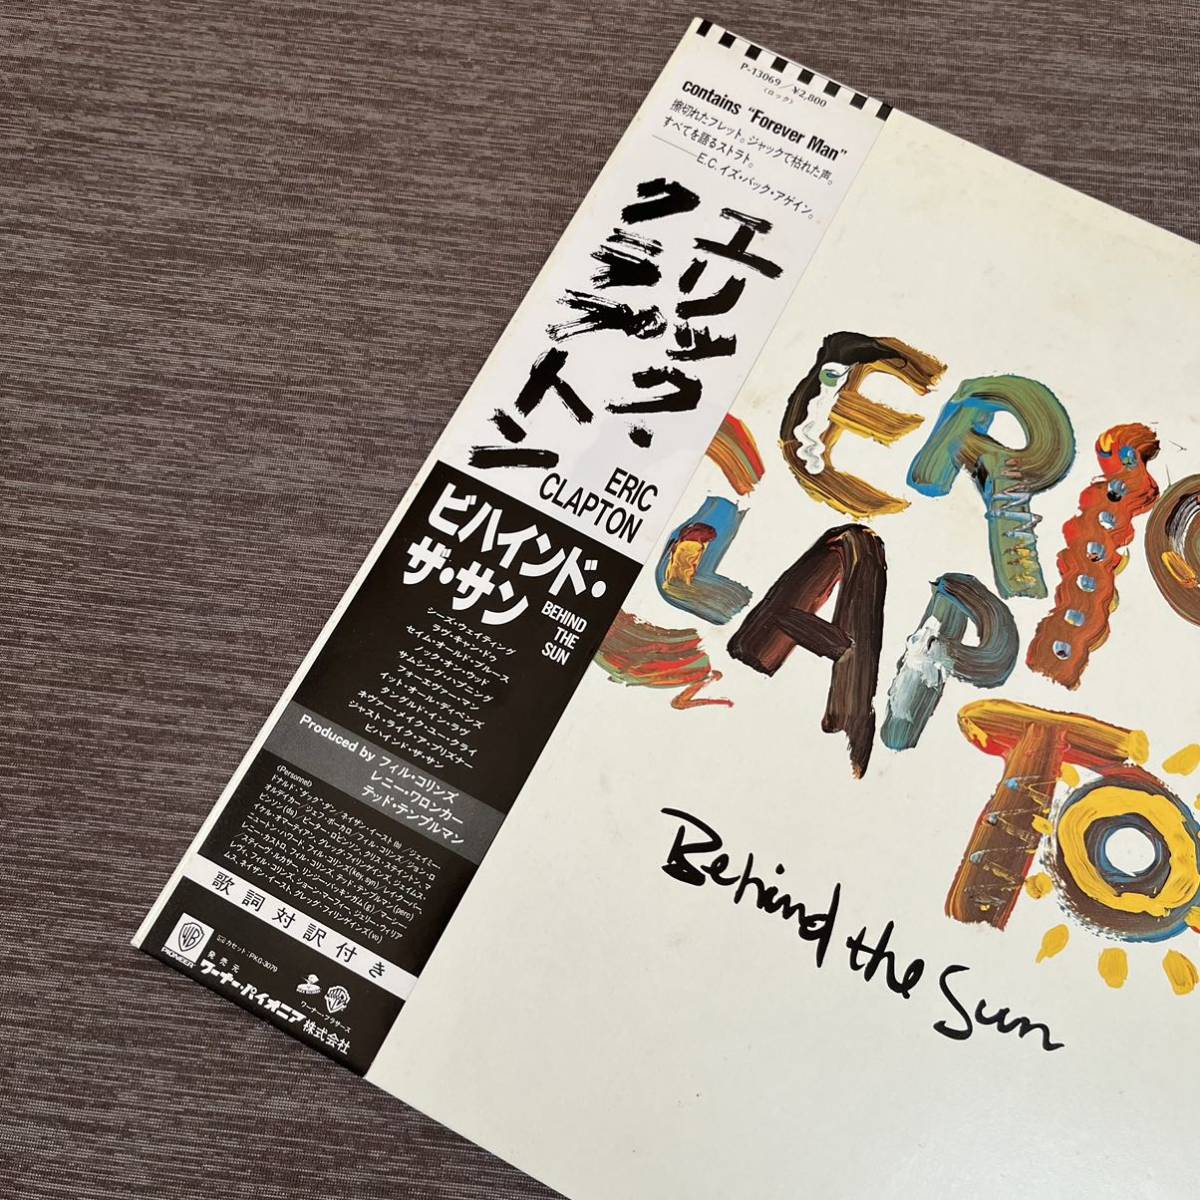 P-13069/¥2,800
〈ロック〉
contains "Forever Man"
擦切れたフレット。ジャックで枯れた声。
すべてを語るストラト。
E.C. イズ・バック・アゲイン。
エリック・
クラプトン
ERIC
CLAPTON
ビハインド・
ザ・サン
BEHIND
THE
SUN
シーズ・ウェイティング
ラヴ・キャン・ドゥ
セイム・オールド・ブルース
ノック・オン・ウッド
サムシング・ハプニング
フォーエヴァー・マン
イット・オール・ディペンズ
タングルド・イン・ラヴ
ネヴァー・メイク・ユー・クライ
ジャスト・ライク・ア・プリズナー
ビハインド・ザ・サン
Produced by フィル・コリンズ
レニー・ワロンカー
テッド・テンプルマン
〈Personnel〉
歌詞対訳付き
WB
PIONEER
カセット：PKG-3079
発売元
ワーナー・パイオニア株式会社
ワーナー・ブラザース
ERIC
CLAPTO
Behind the Sun